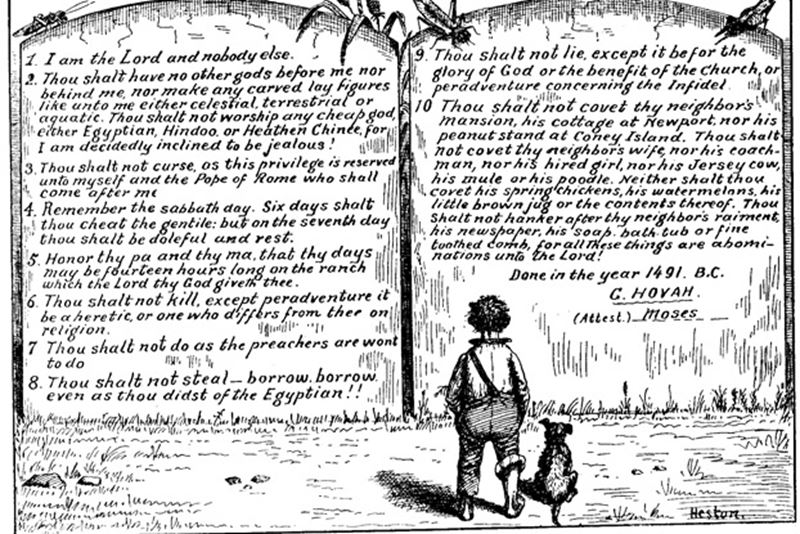 1. I am the Lord and nobody else.
2. Thou shalt have no other gods before me nor
behind me, nor make any carved lay figures
like unto me either celestial, terrestrial or
aquatic. Thou shalt not worship any cheap god,
either Egyptian, Hindoo, or Heathen Chinee, for
I am decidedly inclined to be jealous!
3. Thou shalt not curse, as this privilege is reserved
unto myself and the Pope of Rome who shall
come after me
4. Remember the sabbath day. Six days shalt
thou cheat the gentile: but on the seventh day
thou shalt be doleful and rest.
5. Honor thy pa and thy ma, that thy days
may be fourteen hours long on the ranch
which the Lord thy God giveth thee.
6. Thou shalt not kill, except peradventure it
be a heretic, or one who differs from thee on
religion.
7 Thou shalt not do as the preachers are wont
to do
8. Thou shalt not steal — borrow, borrow,
even as thou didst of the Egyptian!!
9. Thou shalt not lie, except it be for the
glory of God or the benefit of the Church, or
peradventure concerning the Infidel.
10 Thou shalt not covet thy neighbor's
mansion, his cottage at Newport, nor his
peanut stand at Coney Island. Thou shalt
not covet thy neighbor's wife, nor his coach-
man, nor his hired girl, nor his Jersey cow,
his mule or his poodle. Neither shalt thou
covet his spring chickens, his watermelons, his
little brown jug or the contents thereof. Thou
shalt not hanker after thy neighbor's raiment,
his newspaper, his soap, bath tub or fine
toothed comb, for all these things are abomi-
nations unto the Lord!
Done in the year 1491. B.C.
G. HOVAH.
(Attest.) Moses
Heston.